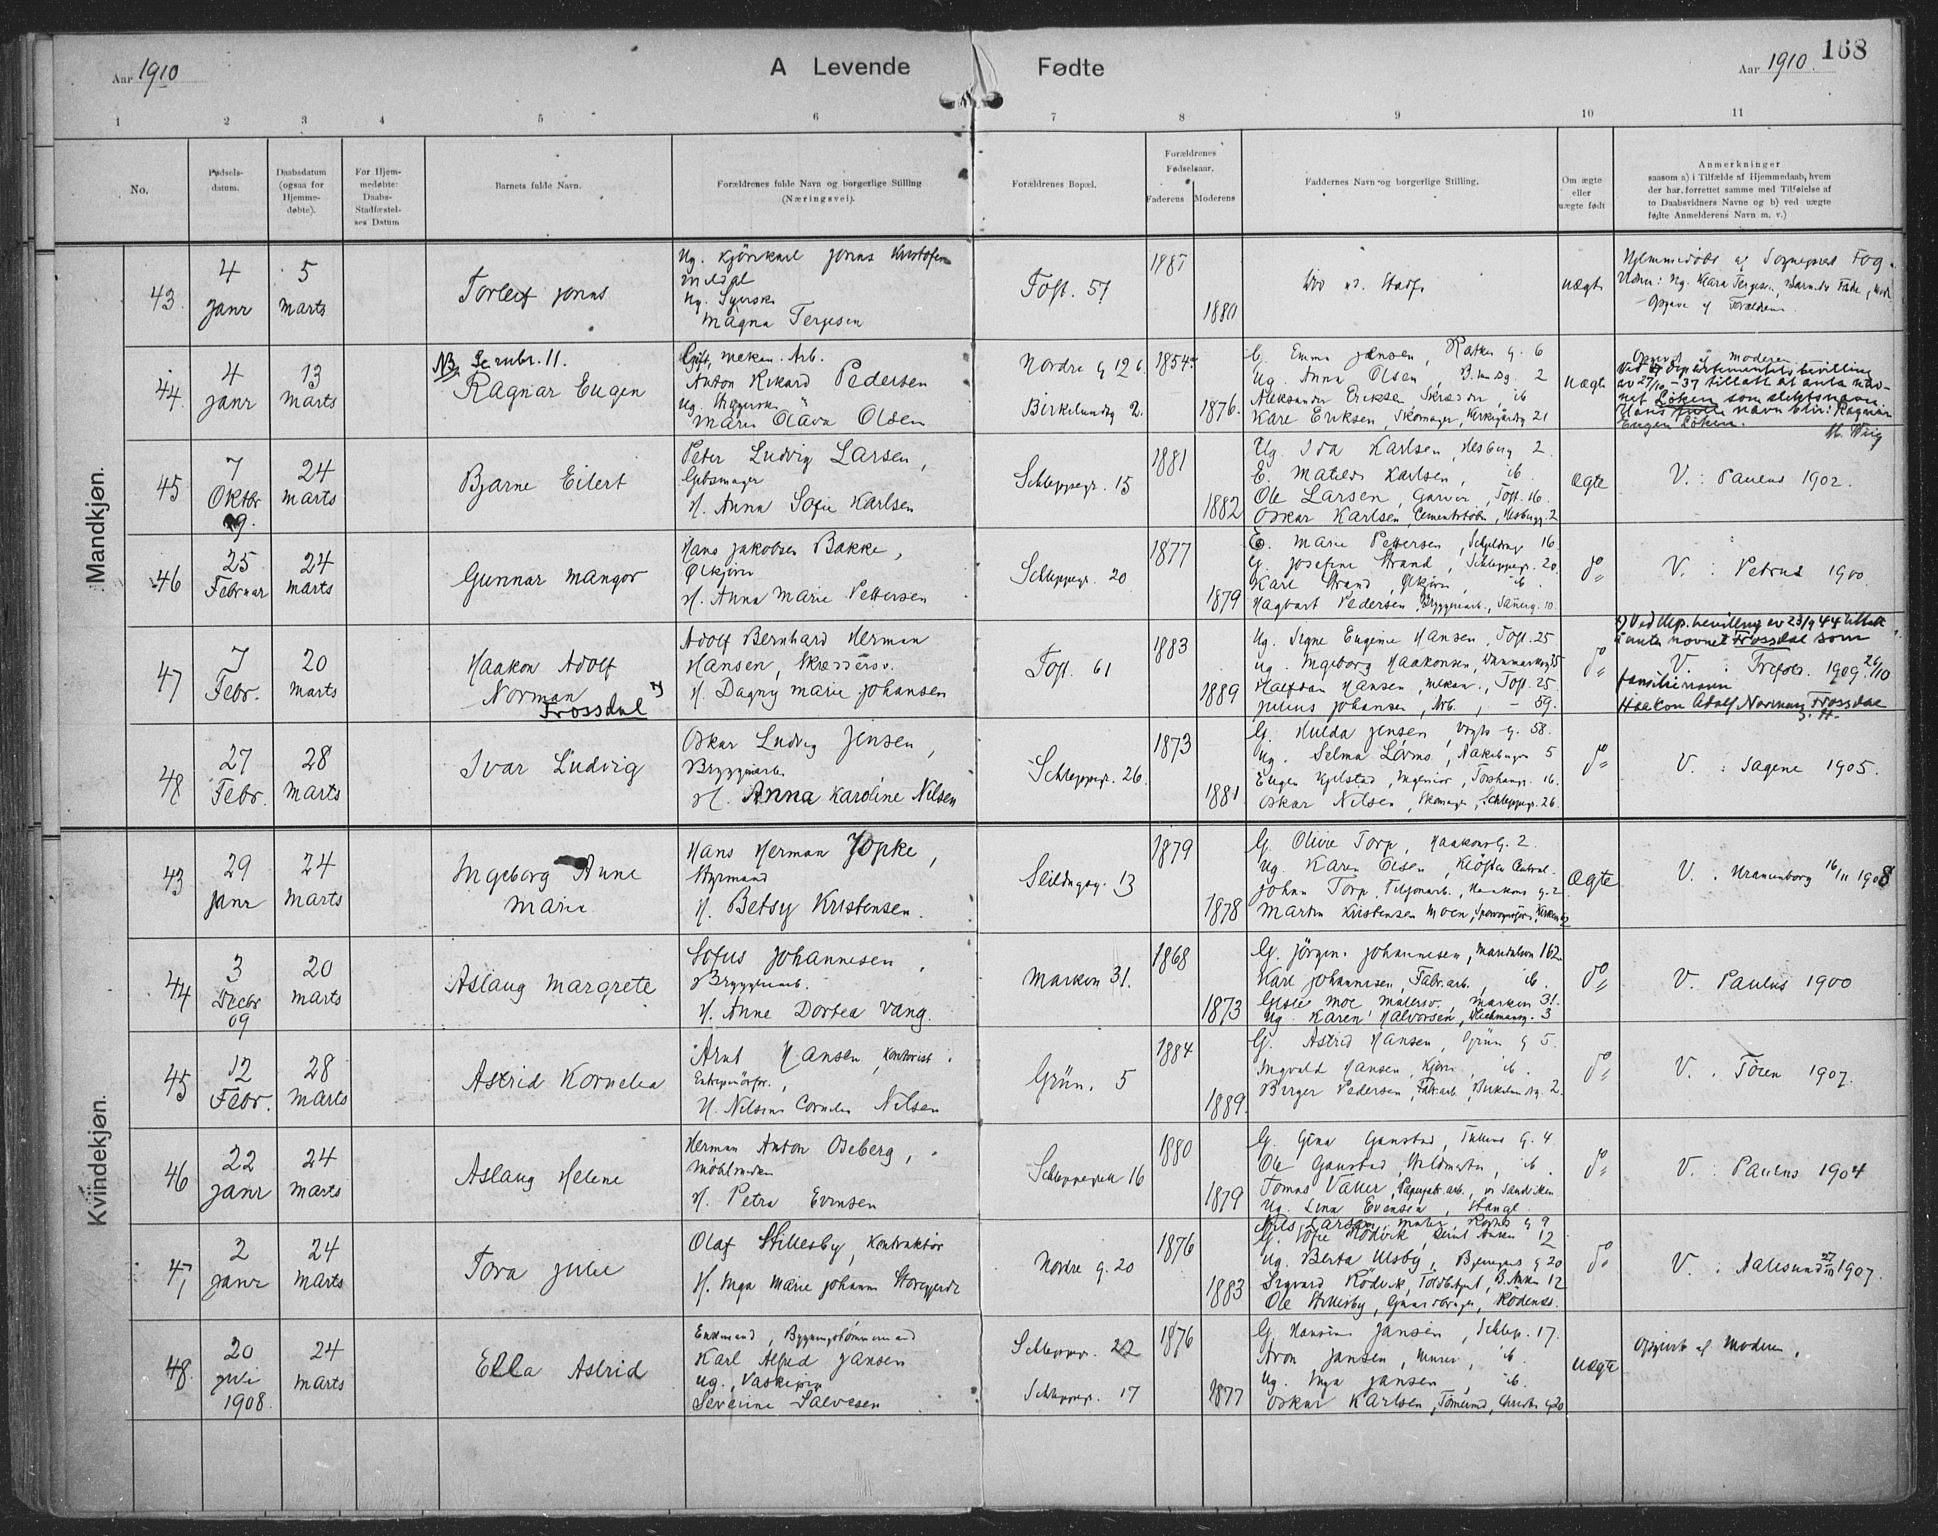 Aar 1910
A Levende Fødte
Aar 1910.
168
1 2 3 4 5 6 7 8 9 10 11
No.
Fødsels-
datum.
Daabsdatum
(ogsaa for
Hjemme-
døbte).
For Hjem-
medøbte:
Daabs-
Stadfæstel-
ses Datum
Barnets fulde Navn.
Forældrenes fulde Navn og borgerlige Stilling
(Næringsvei).
Forældrenes Bopæl.
Forældrenes
Fødselsaar.
Faderens Moderens
Faddernes Navn og borgerlige Stilling.
Om ægte
eller
uægte født
Anmerkninger
saasom a) i Tilfælde af Hjemmedaab, hvem
der har forrettet samme med Tilføielse af
to Daabsvidners Navne og b) ved uægte
fødte Anmelderens Navn m. v.)
Mandkjøn.
43.
4
Janr
5
Marts
Torleif Jonas
Ug. Kjørekarl Jonas Kristofer
Meldal
Ug. Syerske
Magna Terjesen
Toft. 57
1887
1880
uægte
Hjemmedøbt af Sognepræst Fog.
44.
4
Janr
13
Marts
NB. Se rubr. 11.
Ragnar Eugen
Gift, mekan. Arb.
Anton Rikard Pedersen
Marie Olava Olsen
Nordre g 12 b.
Birkelundg 2.
1854
1876.
G. Emma Jensen, Ratkes g. 6
Ug. Anna Olsen, B.lundg. 2
Aleksander Eriksen Skrædder, ib
Kare Eriksen, Skomager, Kirkegårdg 21
uægte
Opgivet af moderen.
Ved Departementets bevilling
av 27/10 - 37 tillatt at anta nav-
net Løken som slektsnavn.
Hans fulle navn blir: Ragnar
Eugen Løken.
45
7
Oktbr
09.
24
Marts
Bjarne Eilert
Peter Ludvig Larsen,
Gibsmager
H. Anna Sofie Karlsen
Schleppegr. 15
1881
1882
Ug. Ida Karlsen, Hesberg 2.
E. Matilde Karlsen, ib.
Ole Larsen, Garver, Toft. 16.
Oskar Karlsen, Cementstøber, Hesbergg. 2
Ægte
V. : Paulus 1902.
46
25
Februar
24
Marts
Gunnar Mangor
Hans Jakobsen Bakke,
Ølkjører
H. Anna Marie Pettersen
Schleppegr. 20
1877
1879
E. Marie Pettersen, Schjeldrup 16.
G. Josefine Strand, Schleppegr. 20.
Karl Strand, Ølkjører, ib.
Hagbart Pedersen, Bryggeriarb., Sannerg. 10.
do
V. : Petrus 1900.
47
7
Febr.
20
Marts
Haakon Adolf
Norman x)
Frossdal
Adolf Bernhard Herman
Hansen, Skræddersv.
H. Dagny Marie Johansen
Toft. 61
1883
1889
Ug. Signe Eugenie Hansen, Toft. 25
Ug. Ingeborg Haakonsen, Danmarksg 35
Halfdan Hansen, Mekan., Toft. 25.
Julius Johansen, Arb., - 59.
do
x) Ved Dep. bevilling av 23/9 44 tillatt
å anta navnet Frossdal som
V. : Trefold. 1909. 26/10
familienavn
Haakon Adolf Norman Frossdal
48
27
Febr.
28
Marts
Ivar Ludvig
Oskar Ludvig Jensen,
Bryggeriarb.
H. Anna Karoline Nilsen
Schleppegr. 26.
1873
1881
G. Hulda Jensen, Vogts g. 58.
Ug. Selma Lövmo, Aakebergv 5
Eugen Kjelstad, Ingeniør, Torshaug. 16.
Oskar Nilsen, Skomager, Schleppegr. 26.
do
V. : Sagene 1905.
Kvindekjøn.
43
29
Janr
24
Marts
Ingeborg Anne
Marie
Hans Herman Jopke,
Styrmand
H. Betsy Kristensen.
Seildugsg. 13
1879
1878
G. Olivie Torp, Haakons g. 2.
Ug Karen Olsen, Kløften Central.
Johan Torp, Telefonarb., Haakons g. 2
Martin Kristensen Moen, Sporvognsfører, Kirkeg 12
Ægte
V. : Uranienborg 16/11 1908
44
3
Decbr
09
20
Marts
Aslaug Margrete
Sofus Johannesen,
Bryggeriarb.
H. Anne Dortea Vang.
Markvn 31.
1868
1873
G. Jörgine Johannesen, Maridalsvn 162.
Karl Johannesen, Fabr.arb., ib.
Gustav Moe Malersv., Markvn 31.
Ug. Karen Halvorsen, Wichmansg. 3
do
V. Paulus 1900
45
12
Febr.
28
Marts
Astrid Kornelia
Arnt Hansen, Kontorist
Entreprenørfor.,
H. Nilsine Cornelia Nilsen
Grün. 5
1884
1889.
G. Astrid Hansen, Grün g 5.
Ingvald Hansen, Kjører, ib.
Birger Pedersen, Fabr.arb., Birkelundg. 2.
do
V. : Töien 1907.
46
22
Janr
24
Marts
Aslaug Helene
Herman Anton Oseberg,
Möbelsnedker
H. Petra Evensen
Schleppegrell 16
1880
1879
G. Gina Ganstad, Tullins g. 4.
Ole Ganstad, Vældmester, ib.
Tomas Valler, Papirfabr.arb., pr Sandviken
Ug. Lina Evensen, Stange.
do
V. : Paulus 1904
47
2
Janr
24
Marts
Tora Julie
Olaf Stillesby, Kontraktör
H. Inga Marie Johanne Storegjerde
Nordre g. 20
1876
1883
Nils Larsen, Murer, Rognes g 9
G. Tofie Rödvik, Bernt Ankers 12
Ug. Berta Ulsby, Bjerregaards g 20
Sigvard Rödvik, Toldbetjent, B. Ankers 12
Ole Stillesby, Gaardbruger, Rödenes.
do
V. : Aalesund 27/10 1907.
48.
20
juli
1908.
24
Marts
Ella Astrid
Enkemand, Bygningstömmermand
Karl Alfred Jansen
Ug., Vaskepige
Severine Salvesen
Schleppegr. 22
Schleppegr. 17
1876
1877
G. Hansine Jansen, Schlep. 17.
Aron Jansen, Murer, ib.
Ug. Inga Jansen, ib.
Oskar Karlsen, Tömmermd, Christies g 20
uægte
Opgivet af Moderen.